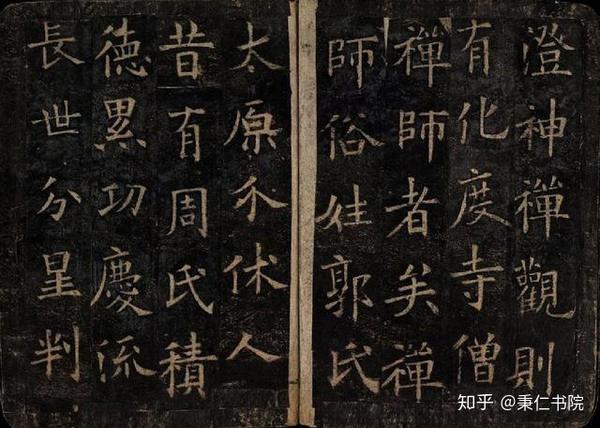 澄神禪觀則
有化度寺僧
禪師者矣禪
師俗姓郭氏
太原介休人
昔有周氏積
德累功慶流
長世分星判
知乎 @秉仁书院